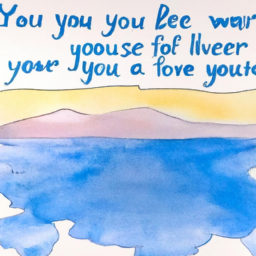 You you you Bee war
youose fof llveer
yosr you a fove youto